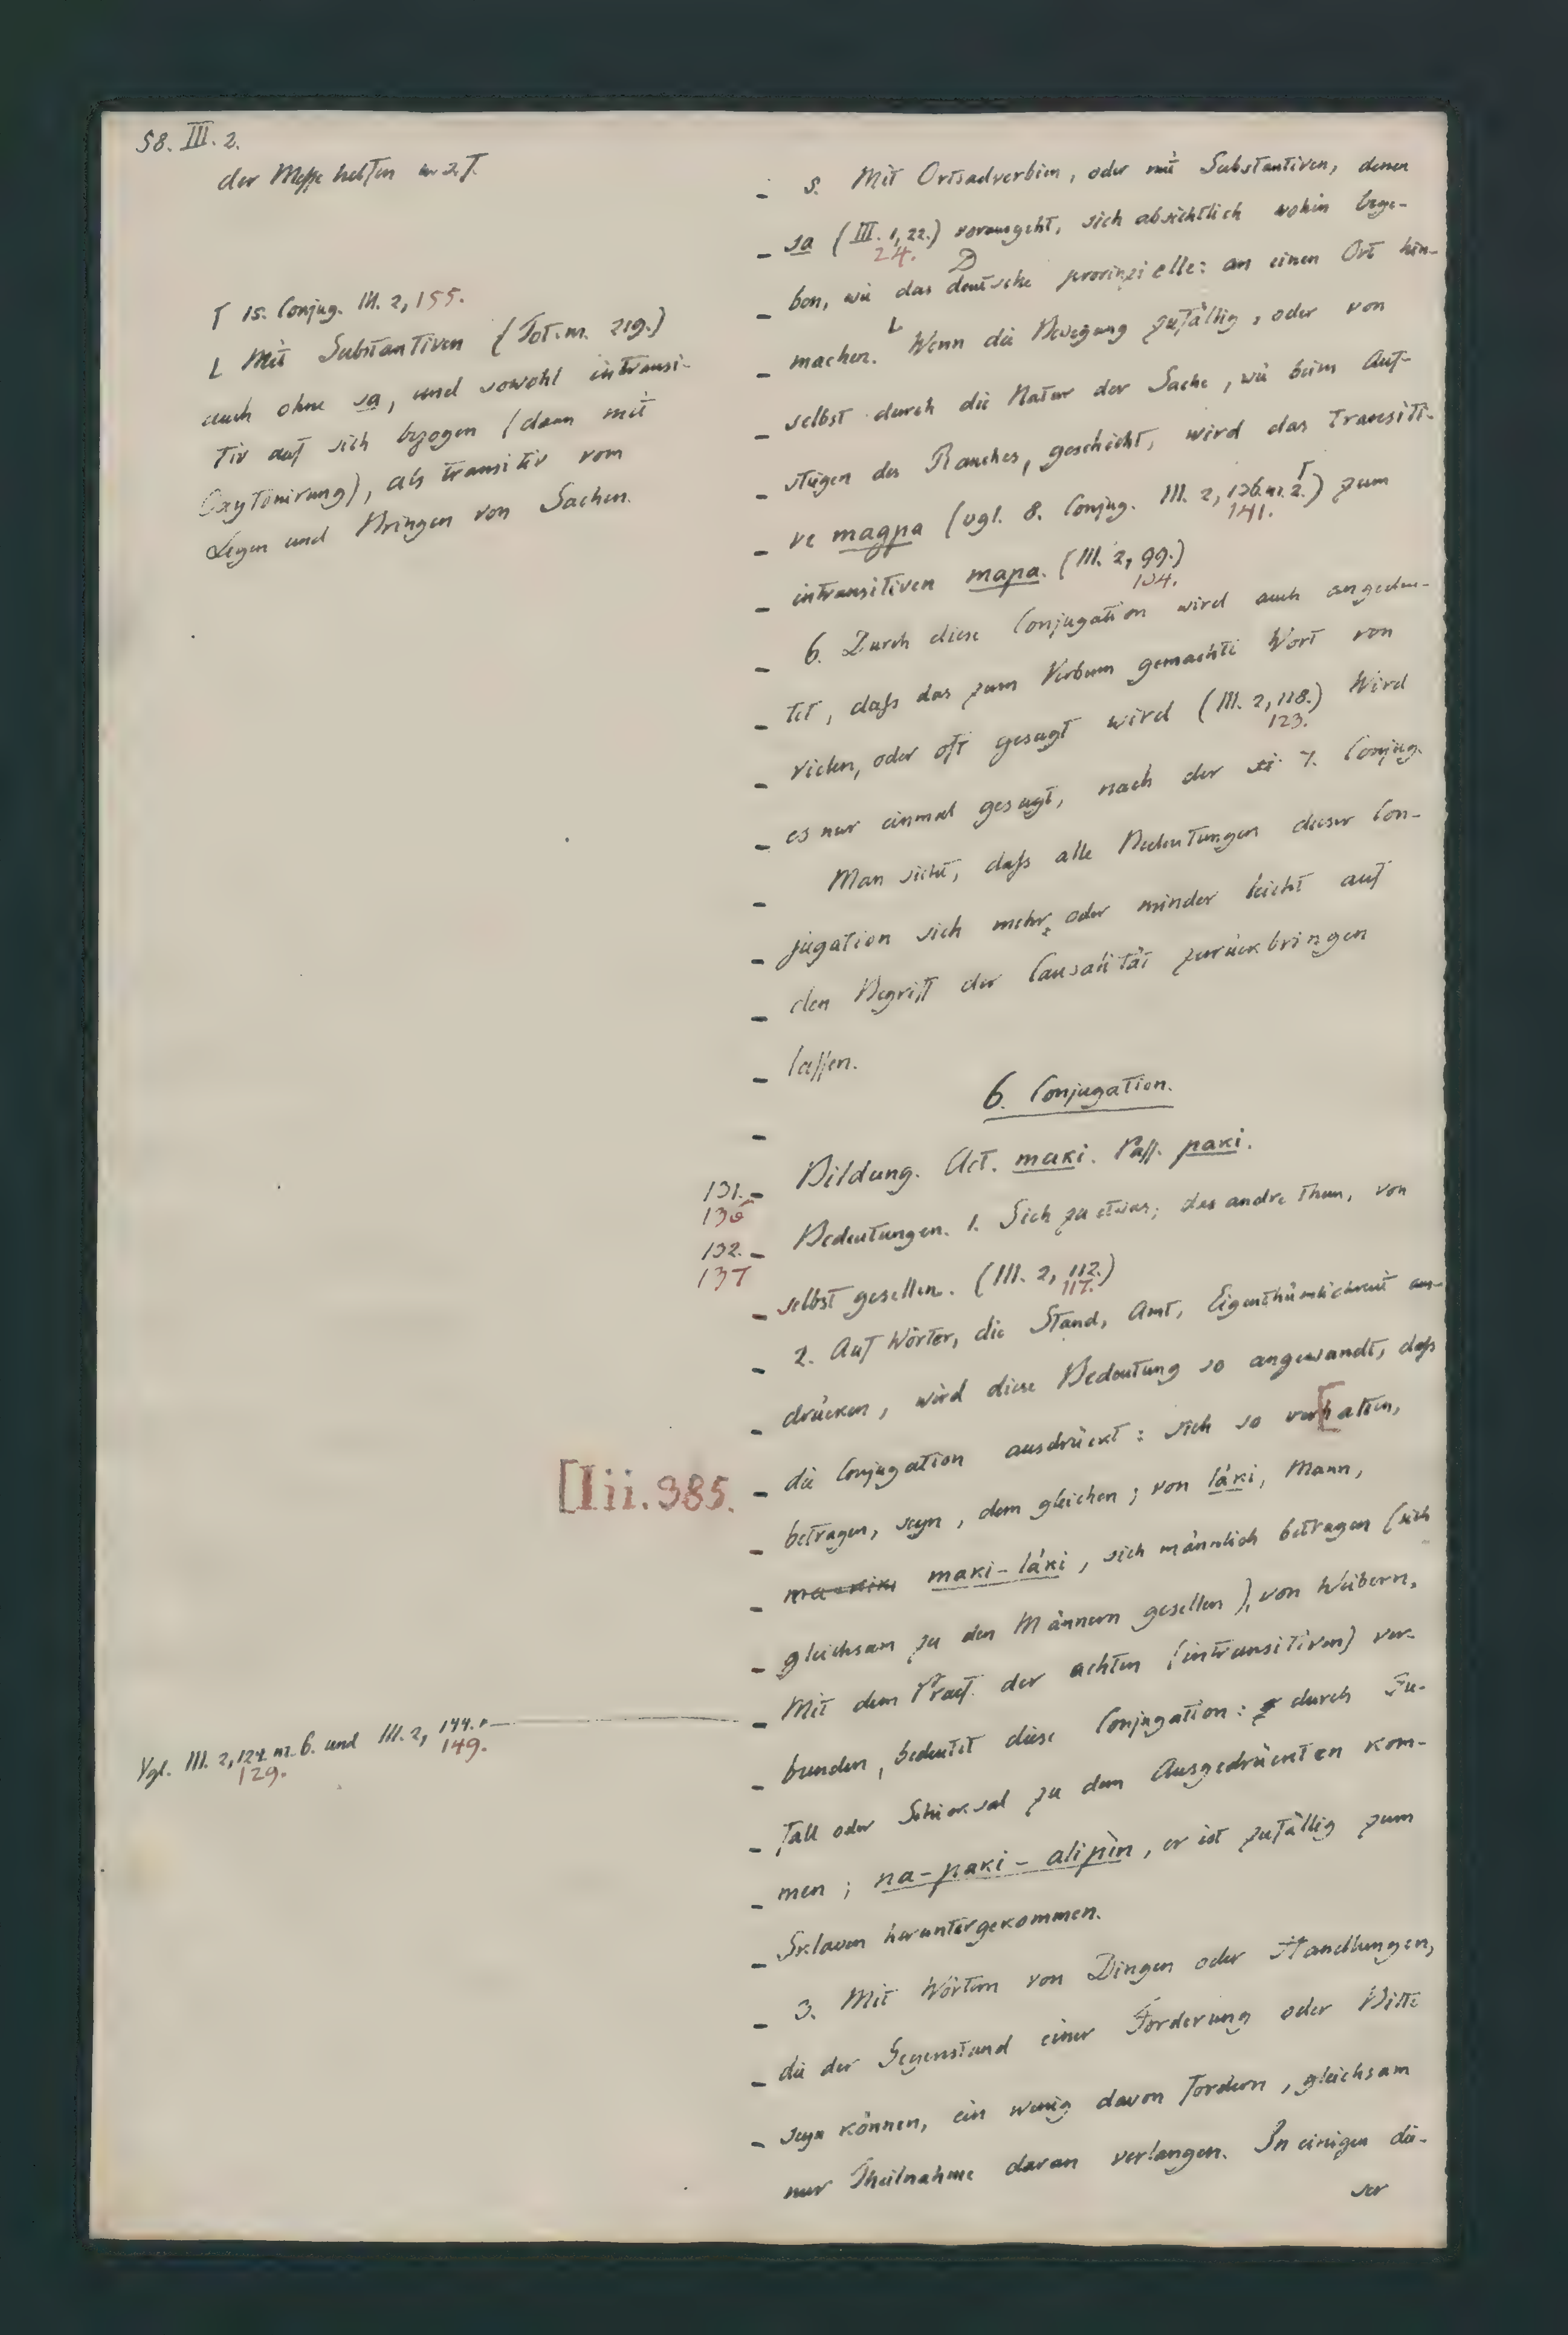 58. III. 2.
der Messe helfen
⌈ 15. Conjug. III. 2, 155.
⌊ Mit Substantiven (Tot. nr. 219.)
auch ohne sa, und sowohl intransi-
tiv auf sich bezogen (dann mit
Oxytonirung), als transitiv vom
Legen und Bringen von Sachen.
5. Mit Ortsadverbien, oder mit Substantiven, denen
sa (III. 1, 22.) vorausgeht, sich absichtlich wohin bege-
24. D
ben, wie das deutsche provinzielle: an einen Ort hin-
machen. ⌊ Wenn die Bewegung zufällig, oder von
selbst durch die Natur der Sache, wie beim Auf-
steigen des Rauches, geschieht, wird das transiti-
ve magpa (vgl. 8. Conjug. III. 2, 136. nr. 2.⌈) zum
141.
intransitiven mapa. (III. 2, 99.)
104.
6. Durch diese Conjugation wird auch angedeu-
tet, daß das zum Verbum gemachte Wort von
vielen, oder oft gesagt wird (III. 2, 118.) Wird
123.
es nur einmal gesagt, nach der 7. Conjug.
Man sieht, daß alle Bedeutungen dieser Con-
jugation sich mehr oder minder leicht auf
den Begriff der Causalität zurückbringen
lassen.
6. Conjugation.
131. Bildung. Act. maki. Pass. paki.
136
132. Bedeutungen. 1. Sich zu etwas, das andre thun, von
137
selbst gesellen. (III. 2, 112.)
117.
2. Auf Wörter, die Stand, Amt, Eigenthümlichkeit aus-
drücken, wird diese Bedeutung so angewandt, daß
die Conjugation ausdrückt: sich so ver[halten,
[Iii. 385.
betragen, seyn, dem gleichen; von láki, Mann,
maki-láki, sich männlich betragen (sich
gleichsam zu den Männern gesellen), von Weibern.
Mit dem Praef. der achten (intransitiven) ver-
Vgl. III. 2, 124. nr. 6. und III. 2, 144.
129. 149.
bunden, bedeutet diese Conjugation: durch Zu-
fall oder Schicksal zu dem Ausgedrückten kom-
men; na-paki-alipin, er ist zufällig zum
Sklaven heruntergekommen.
3. Mit Wörtern von Dingen oder Handlungen,
die der Gegenstand einer Forderung oder Bitte
seyn können, ein wenig davon fordern, gleichsam
nur Theilnahme daran verlangen. In einigen die-
ser